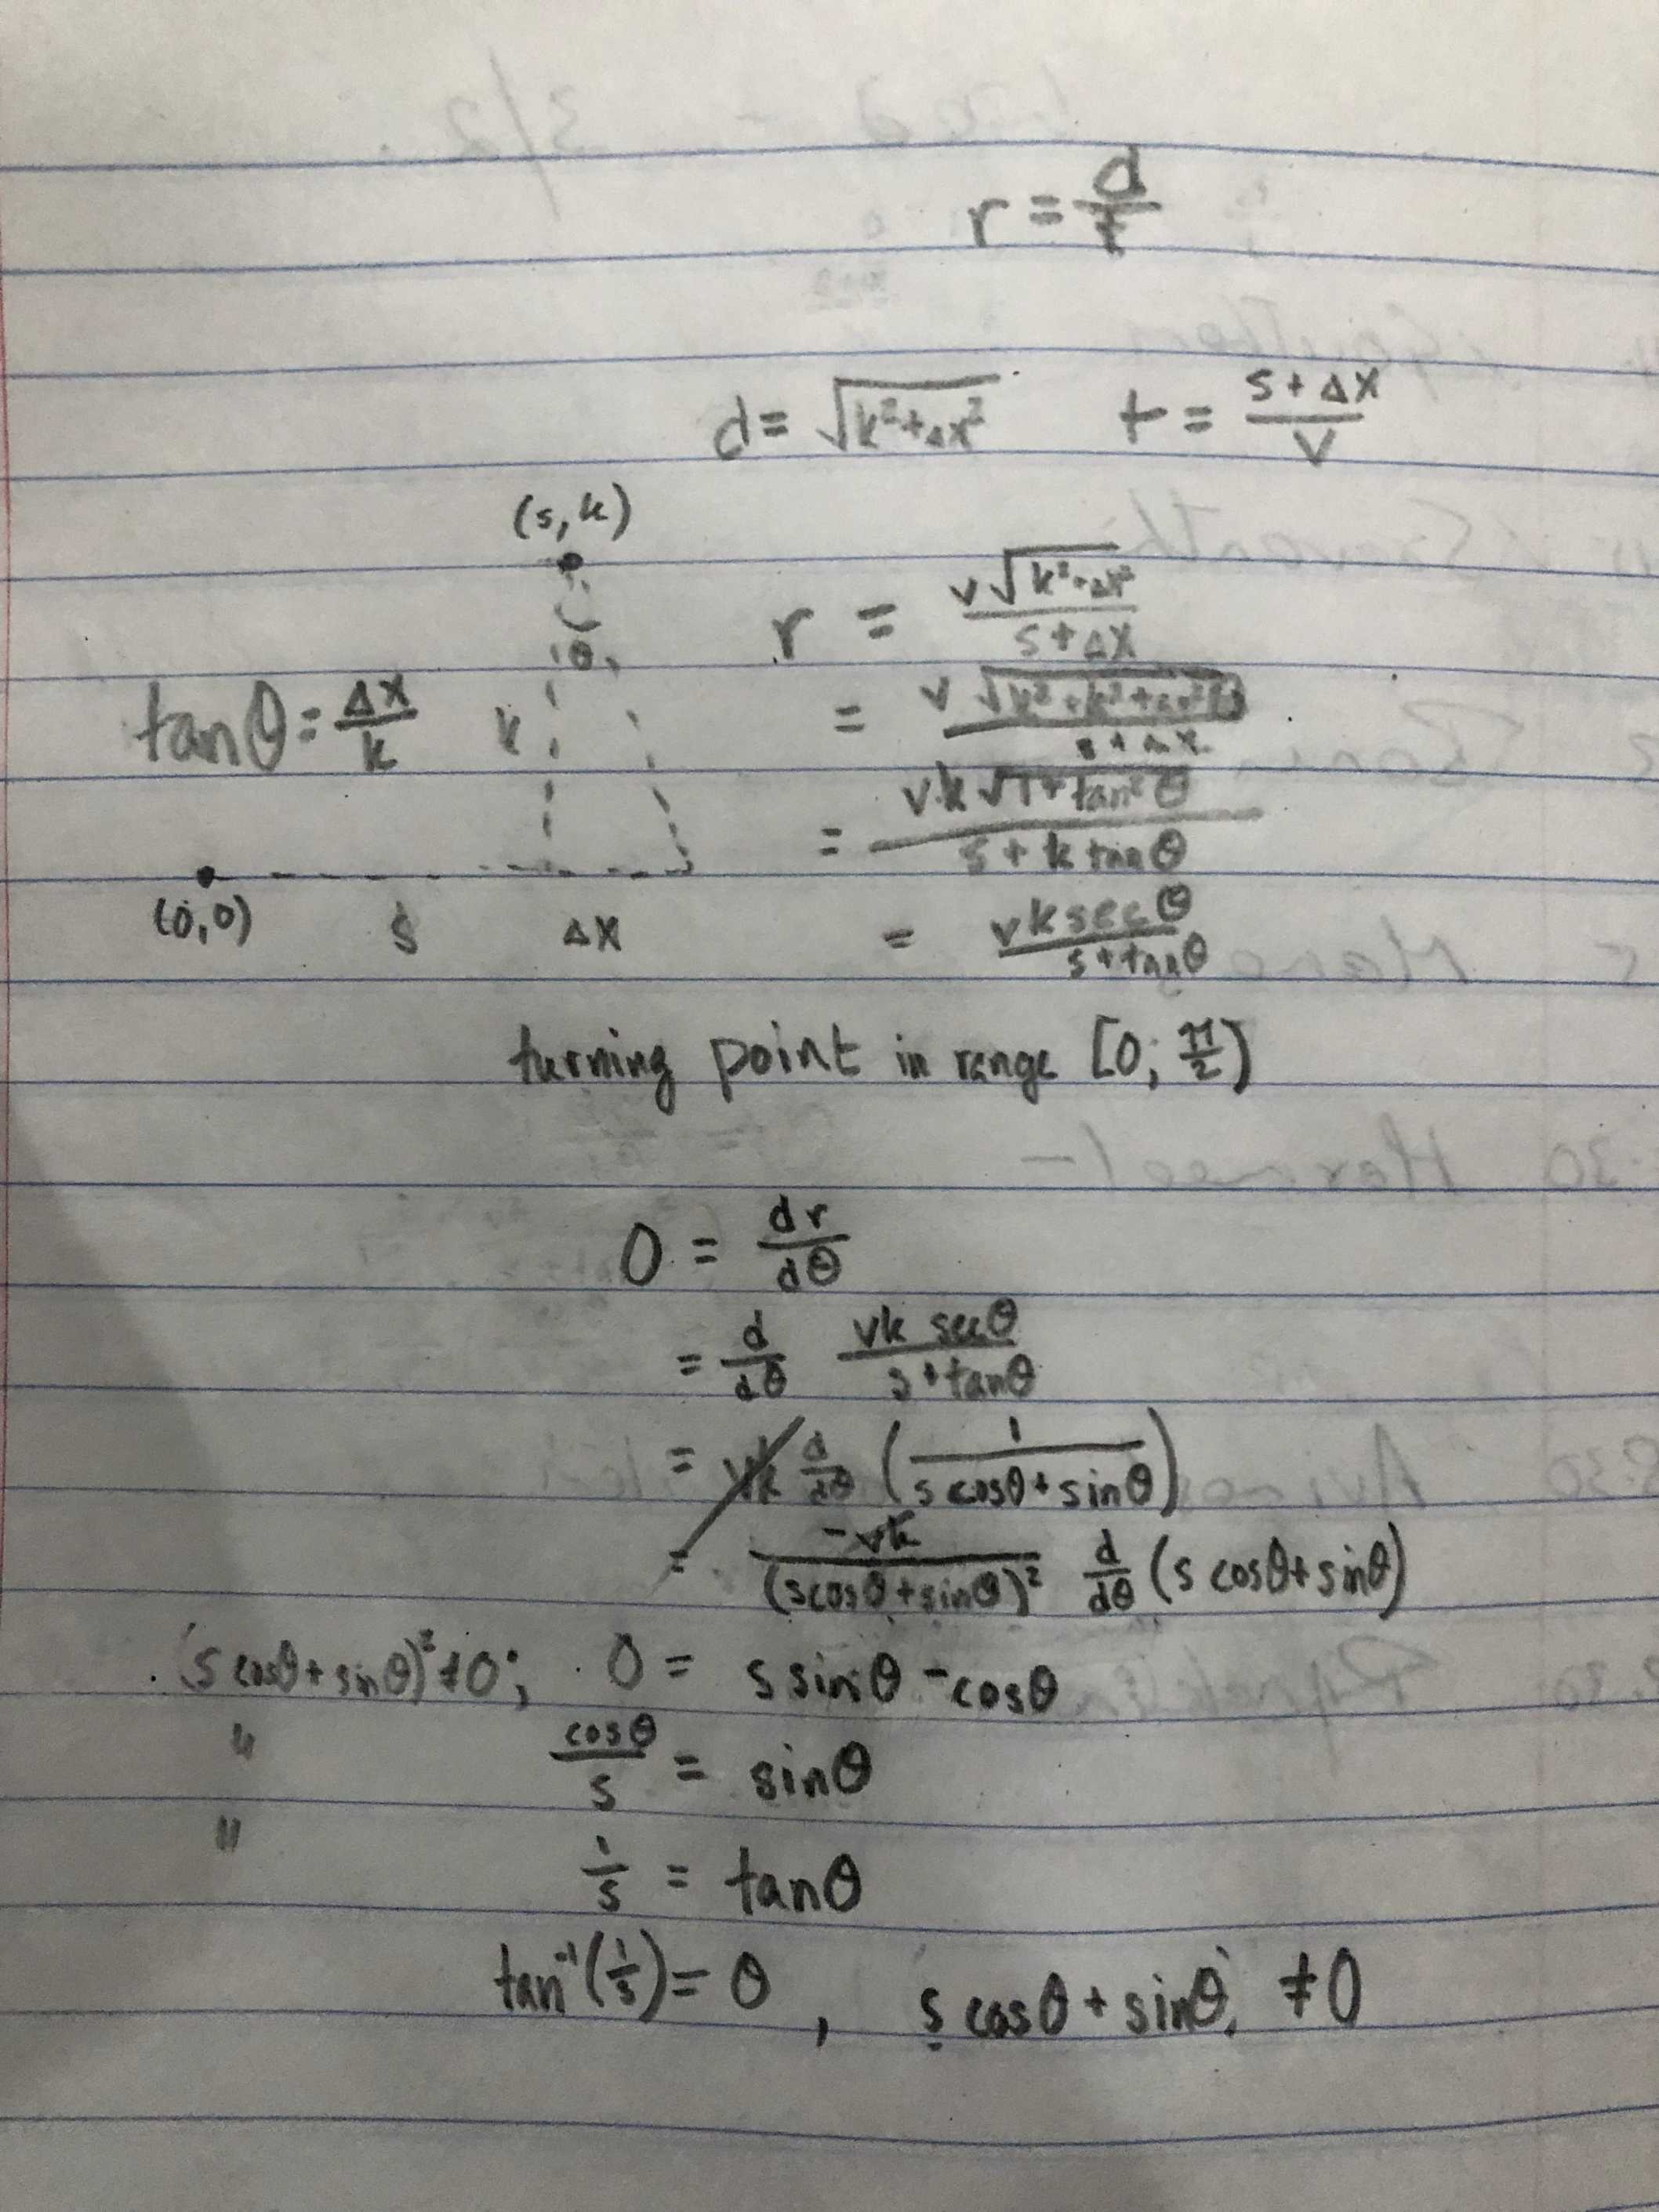 r = d/t
d = √(k² + Δx²)    t = (s + Δx)/v
(s, k)
r = v√(k² + Δx²)/(s + Δx)
θ
tanθ = Δx/k    k
s + Δx
= vk√(1 + tan²θ)/(s + k tanθ)
(0,0)    s    Δx    = vk secθ/(s + tanθ)
turning point in range [0; π/2)
0 = dr/dθ
= d/dθ vk secθ/(s + tanθ)
= vk d/dθ (1/(s cosθ + sinθ))
= -vk/(s cosθ + sinθ)² d/dθ (s cosθ + sinθ)
(s cosθ + sinθ)² ≠ 0;    0 = s sinθ - cosθ
"    cosθ/s = sinθ
"    1/s = tanθ
tan⁻¹(1/s) = θ , s cosθ + sinθ ≠ 0